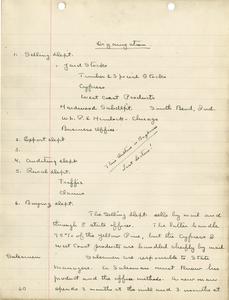 Organization
1. Selling dept.
Yard Stocks
Timber & Special Stocks
Cypress
West Coast Products
Hardwood Subdept. South Bend, Ind.
W. P. & Hemlock - Chicago
Business Office
2. Export dept.
3.
4. Auditing dept
5. Rail dept.
Traffic
Claims
6. Buying dept.
The Selling dept. sells by mail and
through 8 state offices. The latter handle
75% of the Yellow Pine, but the Cypress &
West Coast products are handled chiefly by mail
Salesmen Salesmen are responsible to State
Managers. A Salesman must know his
product and the office methods. A new man
60 spends 3 months at the mill and 3 months at